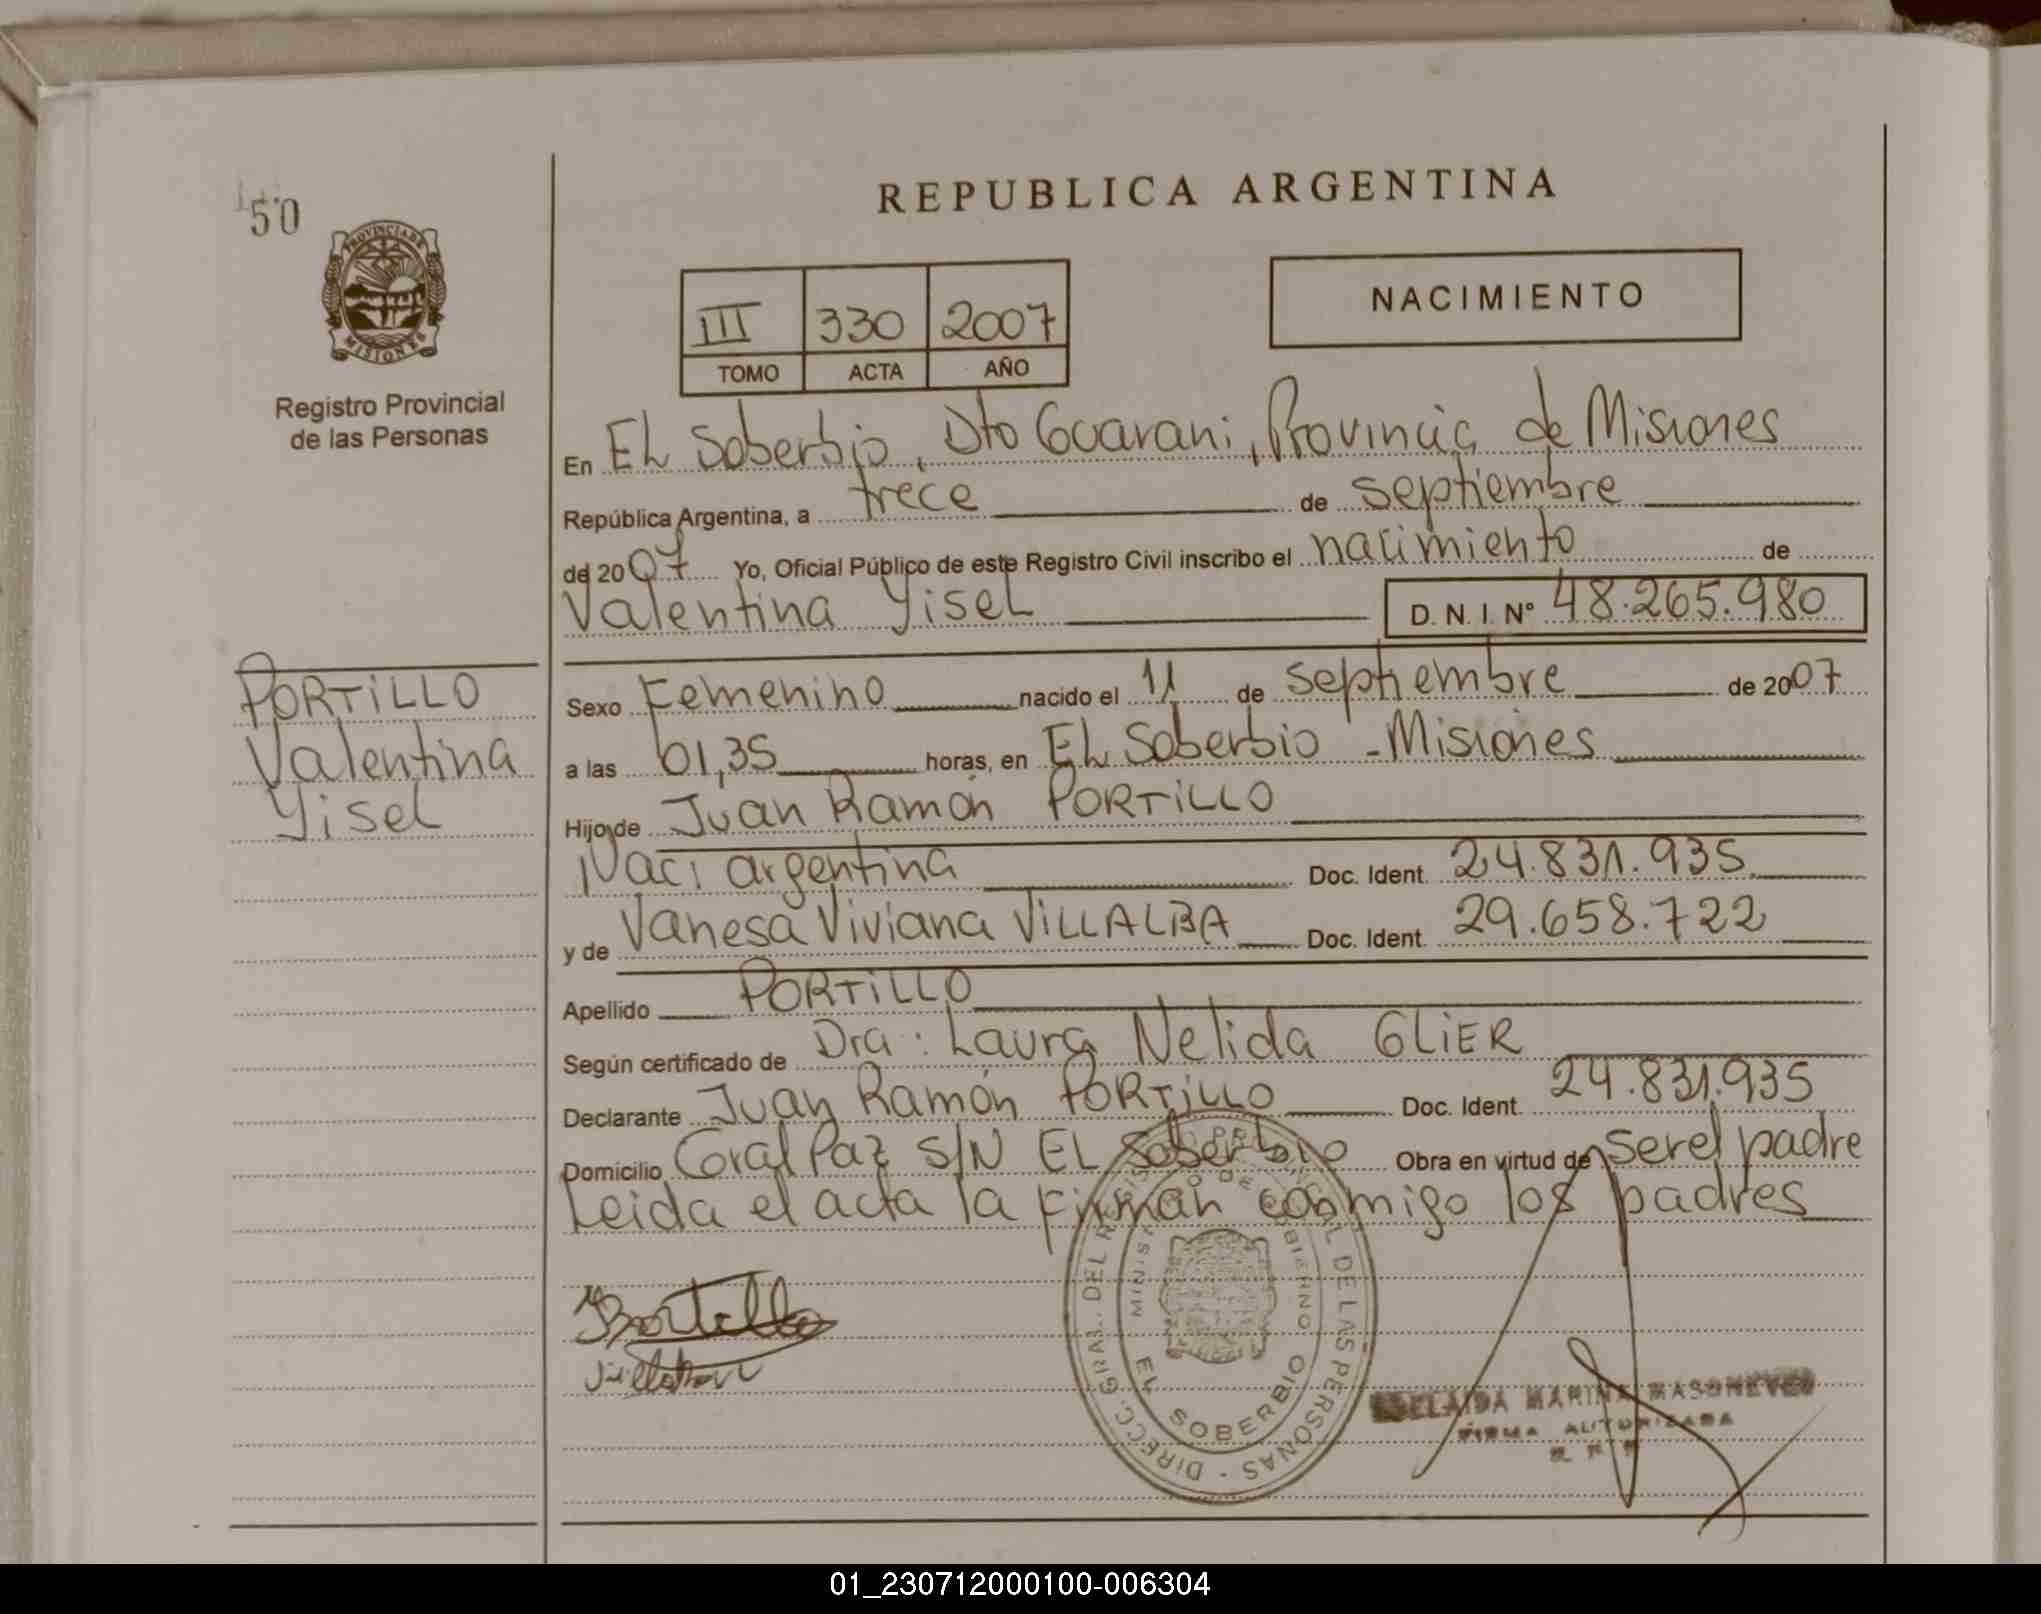 50
PROVINCIA DE
MISIONES
Registro Provincial
de las Personas
REPUBLICA ARGENTINA
III 330 2007
TOMO ACTA AÑO
NACIMIENTO
En EL Soberbio, Dto Guarani, Provincia de Misiones
República Argentina, a trece de septiembre
de 2007 Yo, Oficial Público de este Registro Civil inscribo el nacimiento de
Valentina Yisel D. N. I. Nº 48.265.980
PORTiLLO
Valentina
Yisel
Sexo Femenino nacido el 11 de septiembre de 2007
a las 01,35 horas, en EL Soberbio - Misiones
Hijo de Juan Ramón PORTiLLO
Naci argentina Doc. Ident. 24.831.935
y de Vanesa Viviana ViLLALBA Doc. Ident. 29.658.722
Apellido PORTiLLO
Según certificado de Dra: Laura Nelida GLiER
Declarante Juan Ramón PORTiLLO Doc. Ident. 24.831.935
Domicilio Gral Paz S/N EL Soberbio Obra en virtud de ser el padre
Leida el acta la firman conmigo los padres
Portillo
DIRECC. GRAL. DEL REGISTRO PROVINCIAL DE LAS PERSONAS
MINISTERIO DE GOBIERNO
EL SOBERBIO
MARINA
FIRMA AUTORIZADA
01_230712000100-006304